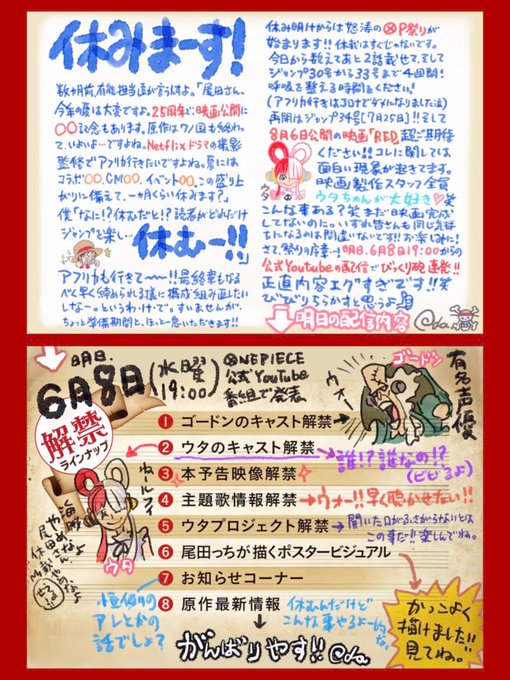 休みまーす!
数ヶ月前、有能担当達が言うんすよ。「尾田さん、
今年の夏は大変ですよ。25周年で、映画公開に
〇〇記念もあります。原作はワノ国も終わっ
て、いよいよ…ですよね。Netflixドラマの撮影
監修でアフリカ行きたいですよね。夏には
コラボ〇〇、CM〇〇、イベント〇〇、この盛り上
がりに備えて、一か月くらい休みます?」
僕「なに!?休むだと!?読者がどれだけ
ジャンプを楽し…休むー!!」
アフリカも行きて〜〜!!最終章もなる
べく早く締められる様に構成組み直したい
しな〜。というわけで。すいませんが、
ちょっと準備期間と、ほっと一息いただきます!!
休み明けからは怒涛のOP祭りが
始まります!!休載はすぐじゃないです。
今日から数えてあと2話載せて、そして
ジャンプ30号から33号まで4回間!
呼吸を整える時間をください!
(アフリカ行きはコロナでダメになりました泣)
再開はジャンプ34号【7月25日】!!そして
8月6日公開の映画「RED」超ご期待
ください!!コレに関しては
面白い現象が起きてます。
映画製作スタッフ全員
ウタちゃんが大好き♡笑
ウタ
こんな事ある?笑 まだ映画完成
してないのに。いずれ皆さんも同じ気持
ちになるのは間違いないです!!お楽しみに!
さて、祭りの序章…!明日、6月8日19:00からの
公式Youtubeの配信でびっくり砲連発!!
正直内容エグすぎです!!笑
びびりちらかすと思うよ
明日の配信内容
Oda
6月8日(水曜 19:00)
ONEPIECE
公式YouTube
番組で発表
解禁
ラインナップ
ゴードン
有名声優
ウォー
1 ゴードンのキャスト解禁
2 ウタのキャスト解禁
誰!?誰なの!?
(ビビるよ)
3 本予告映像解禁
4 主題歌情報解禁
ウォー!!早く聴かせたい!!
5 ウタプロジェクト解禁
開いた口がふさがらないとは
この事だ!!楽しんでね。
6 尾田っちが描くポスタービジュアル
7 お知らせコーナー
8 原作最新情報
ウタ
恒例の
アレとかの
話でしょ?
休むんだけど
こんな事やるよー的な。
かっこよく
描けました!!
見てね。
がんばりやす!!
Oda